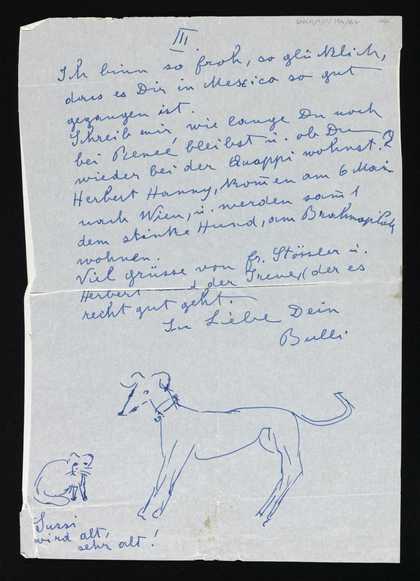 III.
Ich binn so froh, so glücklich,
dass es Dir in Mexico so gut
gegangen ist.
Schreib mir, wie lange Du noch
bei Reneé bleibst u. ob Du
wieder bei der Quappi wohnst.?
Herbert Hanny, kom̄en am 6 Mai
nach Wien, u. werden sam̄t
dem stinke Hund, am Brahmsplatz
wohnen.
Viel grüsse von Stössler u.
Herbert der (der es
recht gut geht.
In Liebe Dein
Bulli
Sussi
wird alt,
sehr alt!